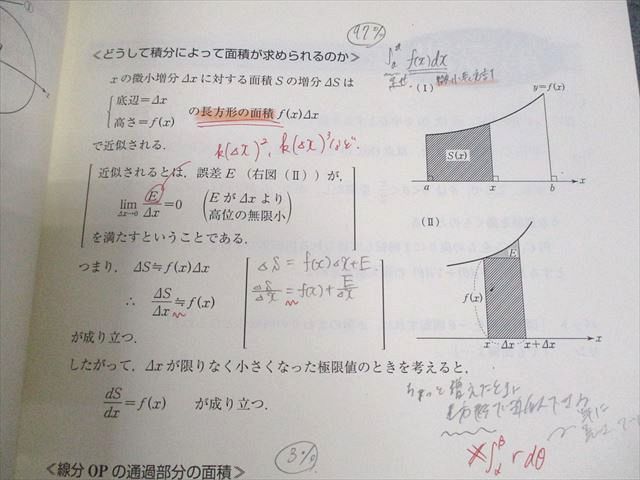 97%
<どうして積分によって面積が求められるのか>
∫ f(x)dx
xの微小増分Δxに対する面積Sの増分ΔSは
底辺=Δx
高さ=f(x)
の長方形の面積 f(x)Δx
で近似される.
k(Δx)², k(Δx)³など
近似されるとは, 誤差E (右図(Ⅱ)) が,
lim Δx→0 E/Δx=0 (EがΔxより高位の無限小)
を満たすということである.
つまり, ΔS≒f(x)Δx
∴ ΔS/Δx≒f(x)
ΔS = f(x)Δx+E
ΔS/Δx = f(x)+E/Δx
が成り立つ.
したがって, Δxが限りなく小さくなった極限値のときを考えると,
dS/dx=f(x) が成り立つ.
(Ⅰ)
y=f(x)
S(x)
a x b x
(Ⅱ)
E
f(x)
x Δx x+Δx x
ちょっと増えたときに
∫ r dθ
3%
<線分OPの通過部分の面積>